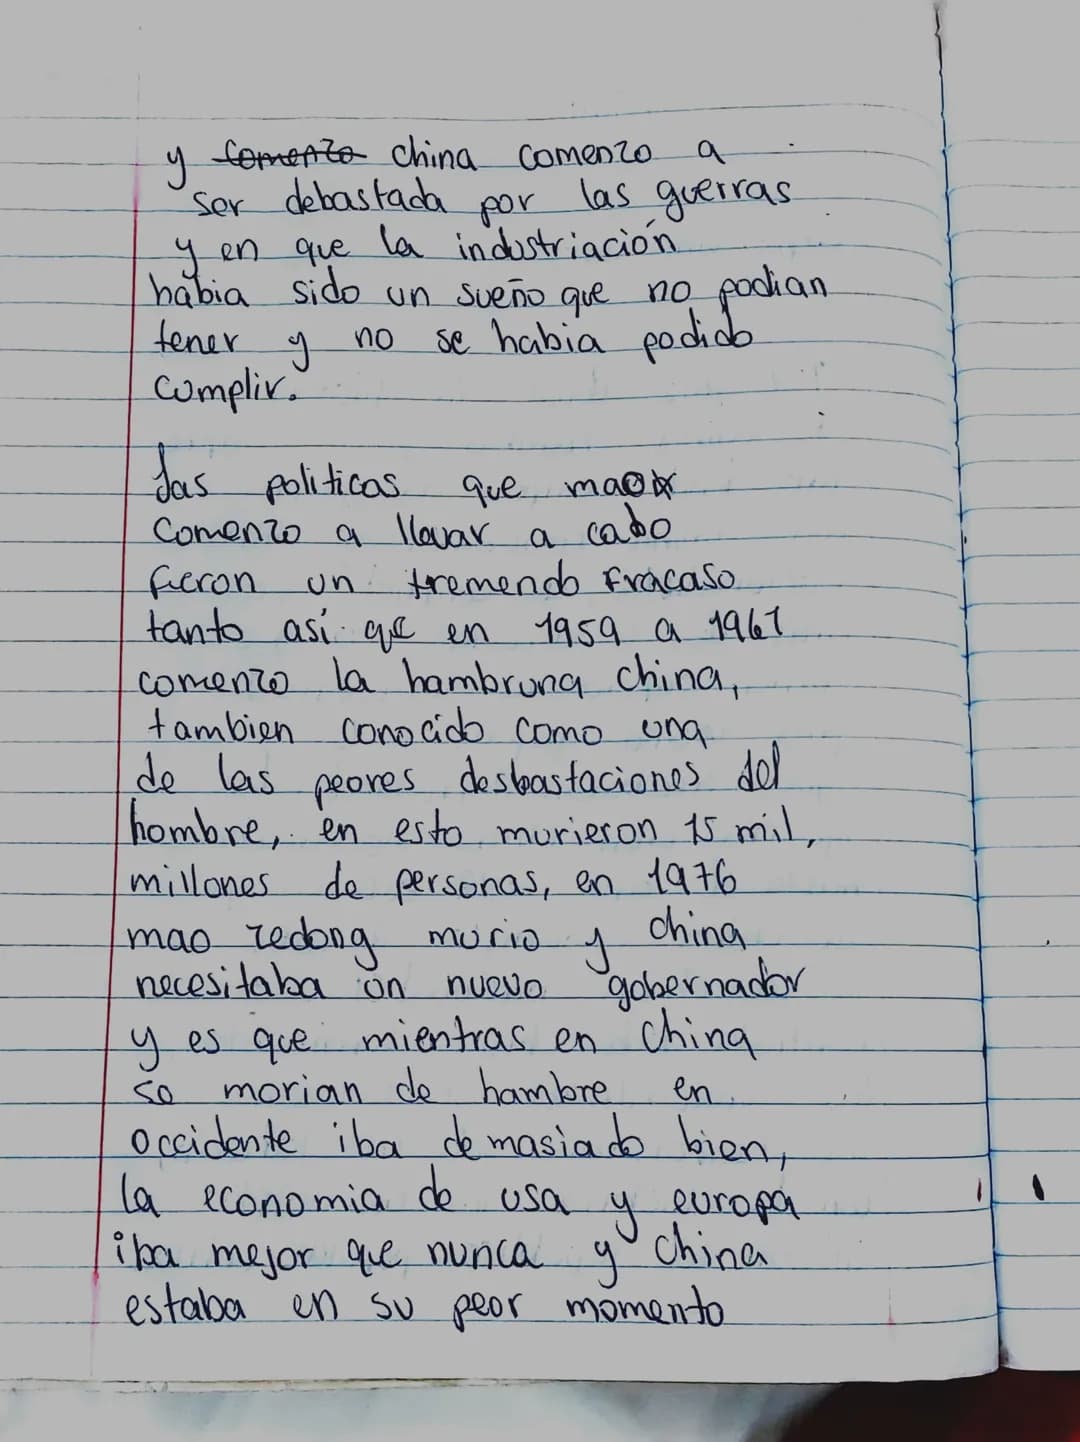 y comenzo china comenzo a
ser debastada por las guerras
y en que la industriación
habia sido un sueño que no podian
tener y no se habia podido
cumplir.
Las politicas que mao
comenzo a llevar a cabo
fieron un tremendo fracaso
tanto así que en 1959 a 1961
comenzo la hambruna china,
tambien conocido como una
de las peores desbastaciones del
hombre, en esto murieron 15 mil,
millones de personas, en 1976
mao zedong murio y china
necesitaba un nuevo gobernador
y es que mientras en China
se morian de hambre en
occidente iba demasiado bien,
la economia de usa y europa
iba mejor que nunca y China
estaba en su peor momento